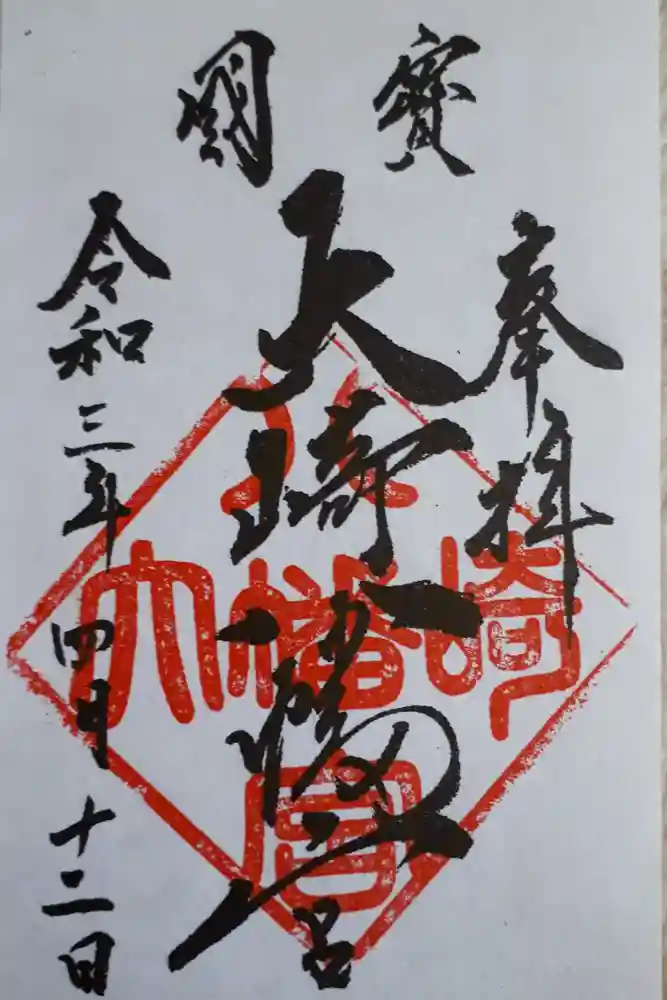 國寳
奉拝
大崎八幡宮
令和三年四月十二日
大崎八幡宮